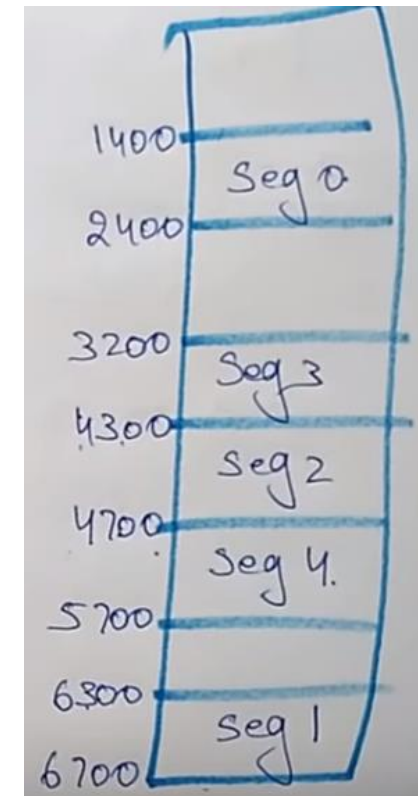 1400
Seg 0
2400
3200
Seg 3
4300
Seg 2
4700
Seg 4.
5700
6300
Seg 1
6700